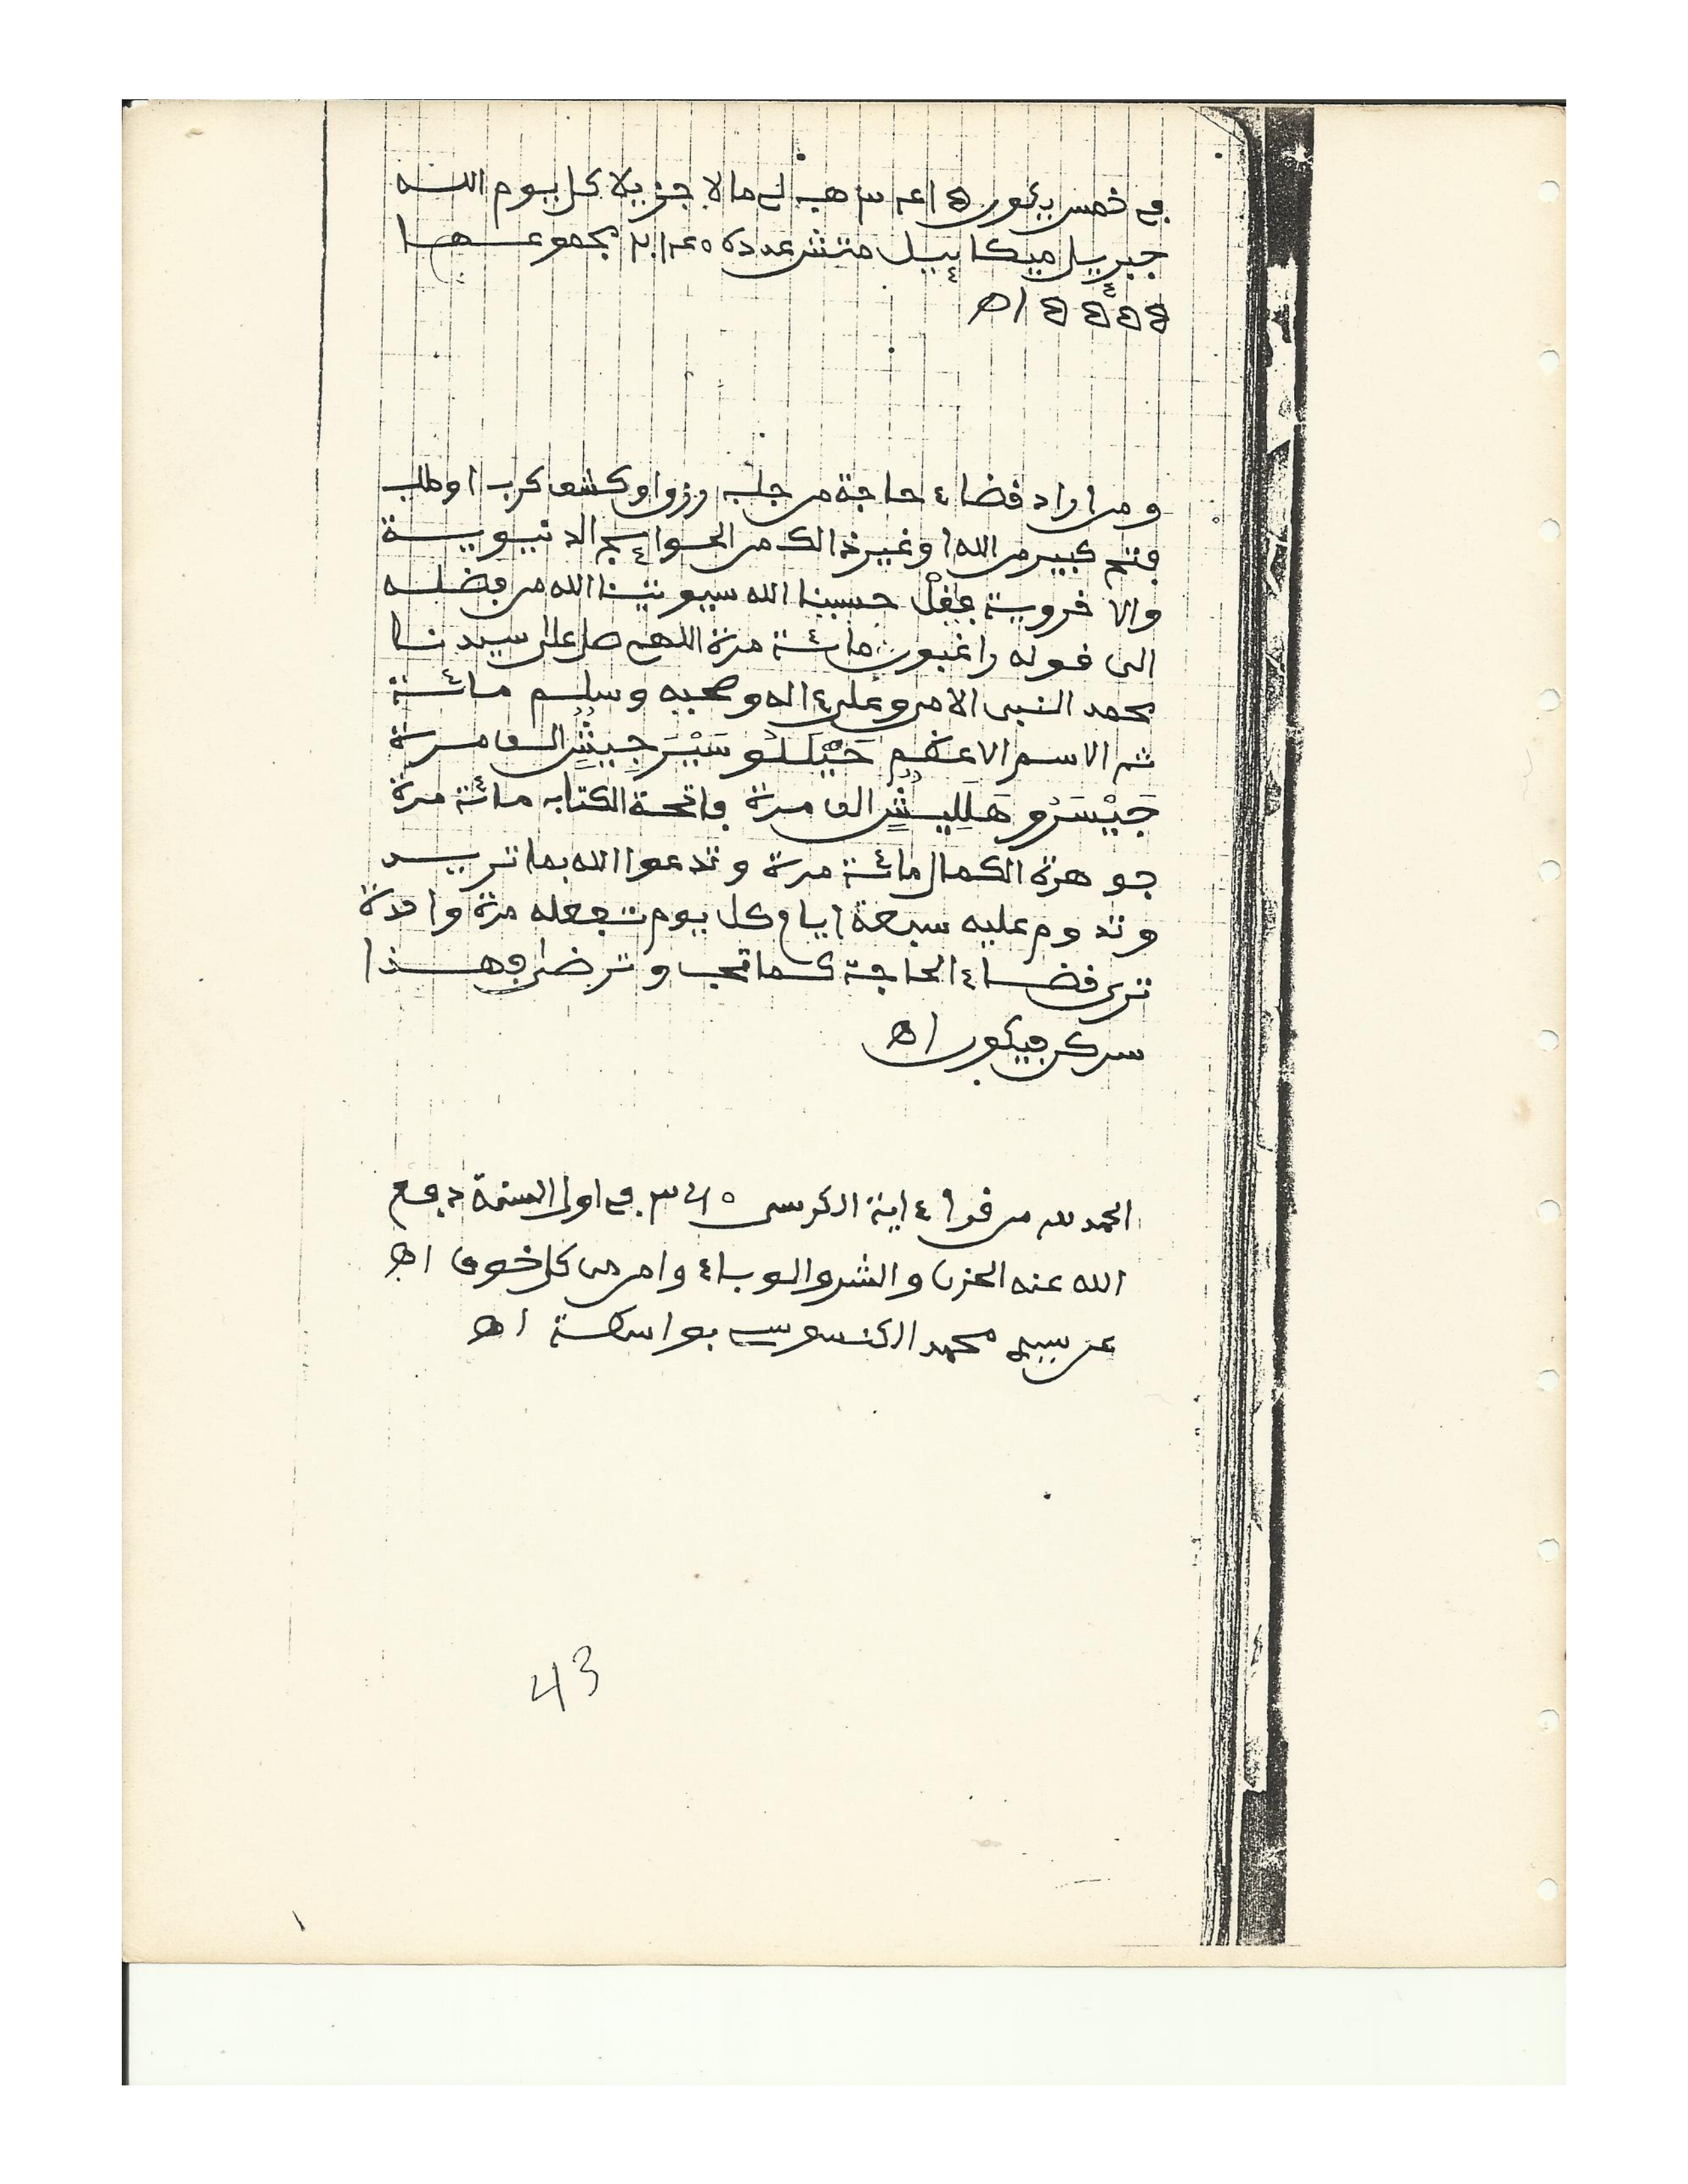 في خمس يكون هب لي مالا جزيلا كل يوم الله
جبريل ميكاييل عدده مجموعها
اه
ومن اراد قضاء حاجة من جلب رزق او كشف كرب او طلب
فتح كبير من الله او غير ذالك من الحوائج الدنيوية
والاخروية حسبنا الله سيوتينا الله من فضله
الى قوله راغبون مائة مرة اللهم صل على سيدنا
محمد النبي الامي وعلى ءاله وصحبه وسلم مائة
ثم الاسم الاعظم الف مرة
الف مرة فاتحة الكتاب مائة مرة
جوهرة الكمال مائة مرة وتدعوا الله بما تريد
وتدوم عليه سبعة ايام كل يوم تجعله مرة واحدة
ترى قضاء الحاجة كما تحب وترضى وهذا
سر كن فيكون اه
الحمد لله من قرأ ءاية الكرسي ٣٤٥ في اول السنة دفع
الله عنه الحزن والشر والوباء وامن من كل خوف اه
عن سيدي محمد الكنسوسي بواسطة اه
43